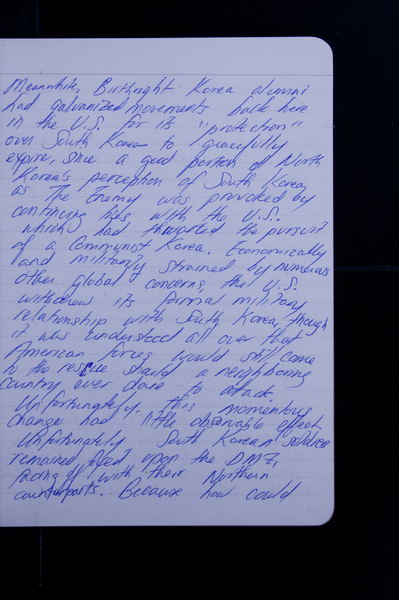 Meanwhile, Birthright Korea alumni
had galvanized movements back here
in the U.S. for its "protection"
over South Korea to gracefully
expire, since a good portion of North
Korea's perception of South Korea
as The Enemy was provoked by
continuing ties with the U.S.
which had thwarted the pursuit
of a Communist Korea. Economically
and militarily strained by numerous
other global concerns, the U.S.
withdrew its formal military
relationship with South Korea, though
it was understood all over that
American forces would still come
to the rescue should a neighboring
country ever dare to attack.
Unfortunately, this momentous
change had little observable effect.
Unfortunately South Korean soldiers
remained fixed upon the DMZ,
facing off with their Northern
counterparts. Because how could